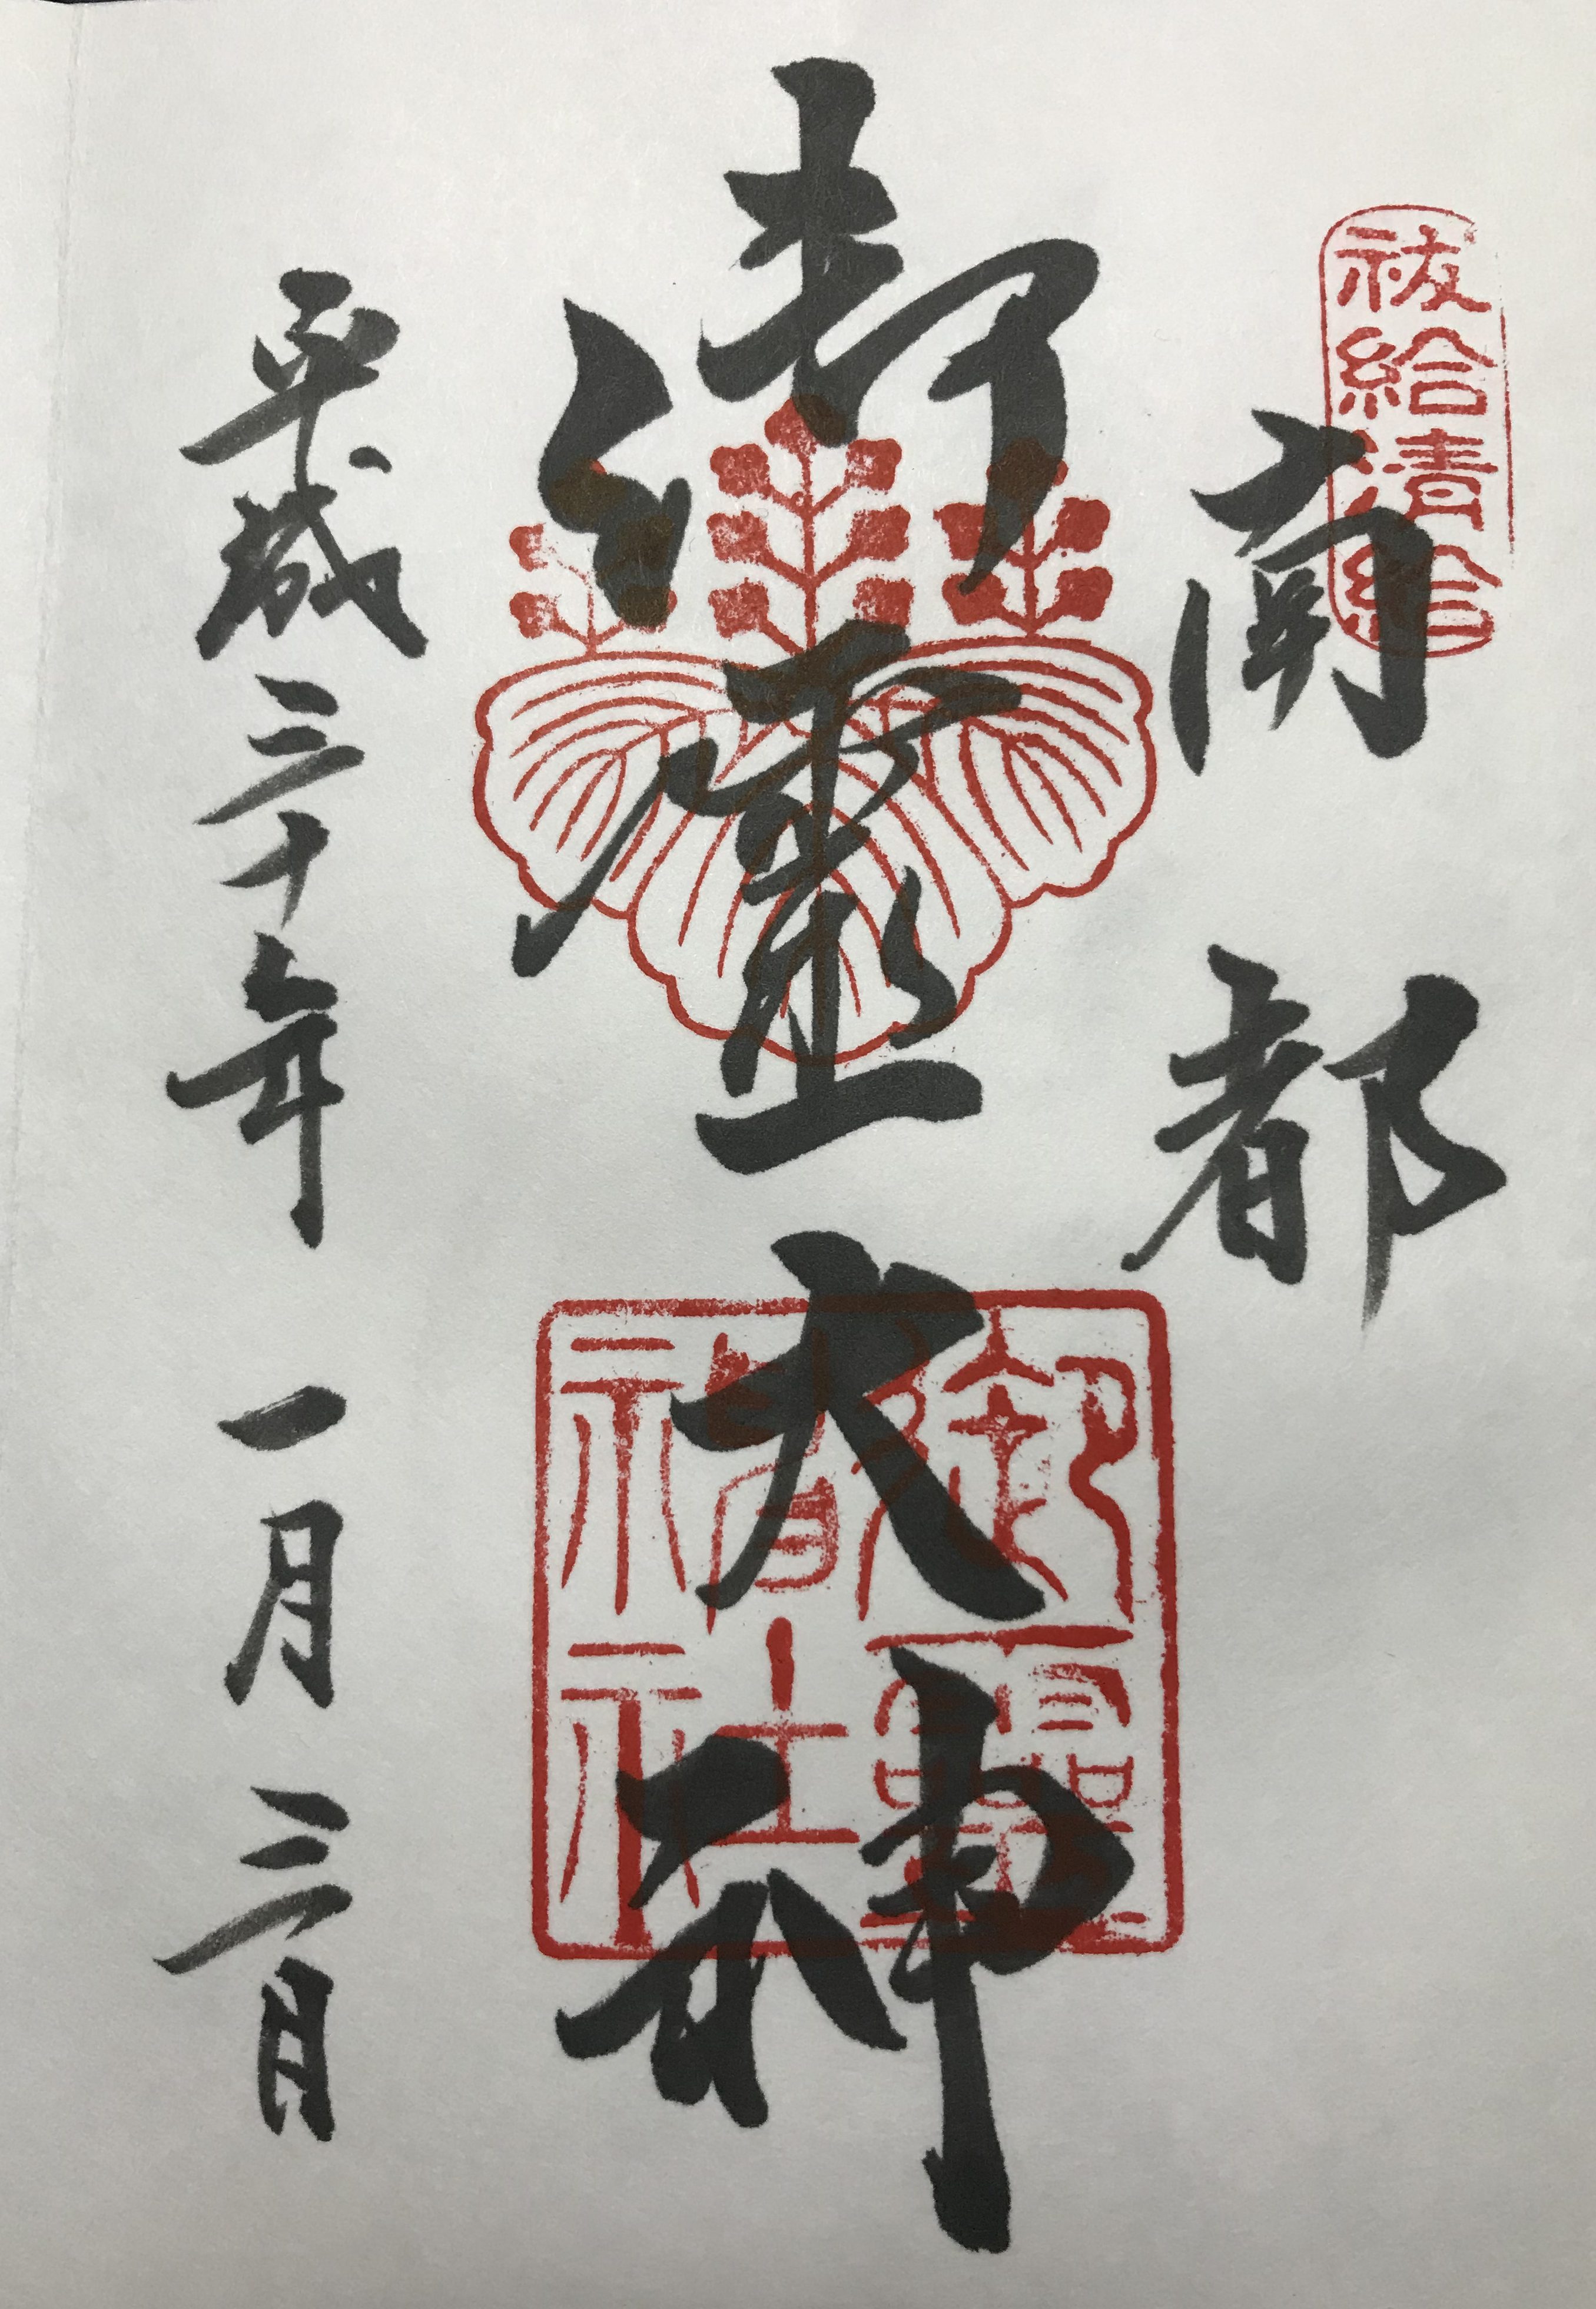 祓給清給
南都
御霊大神
御霊神社
平成三十年一月三日